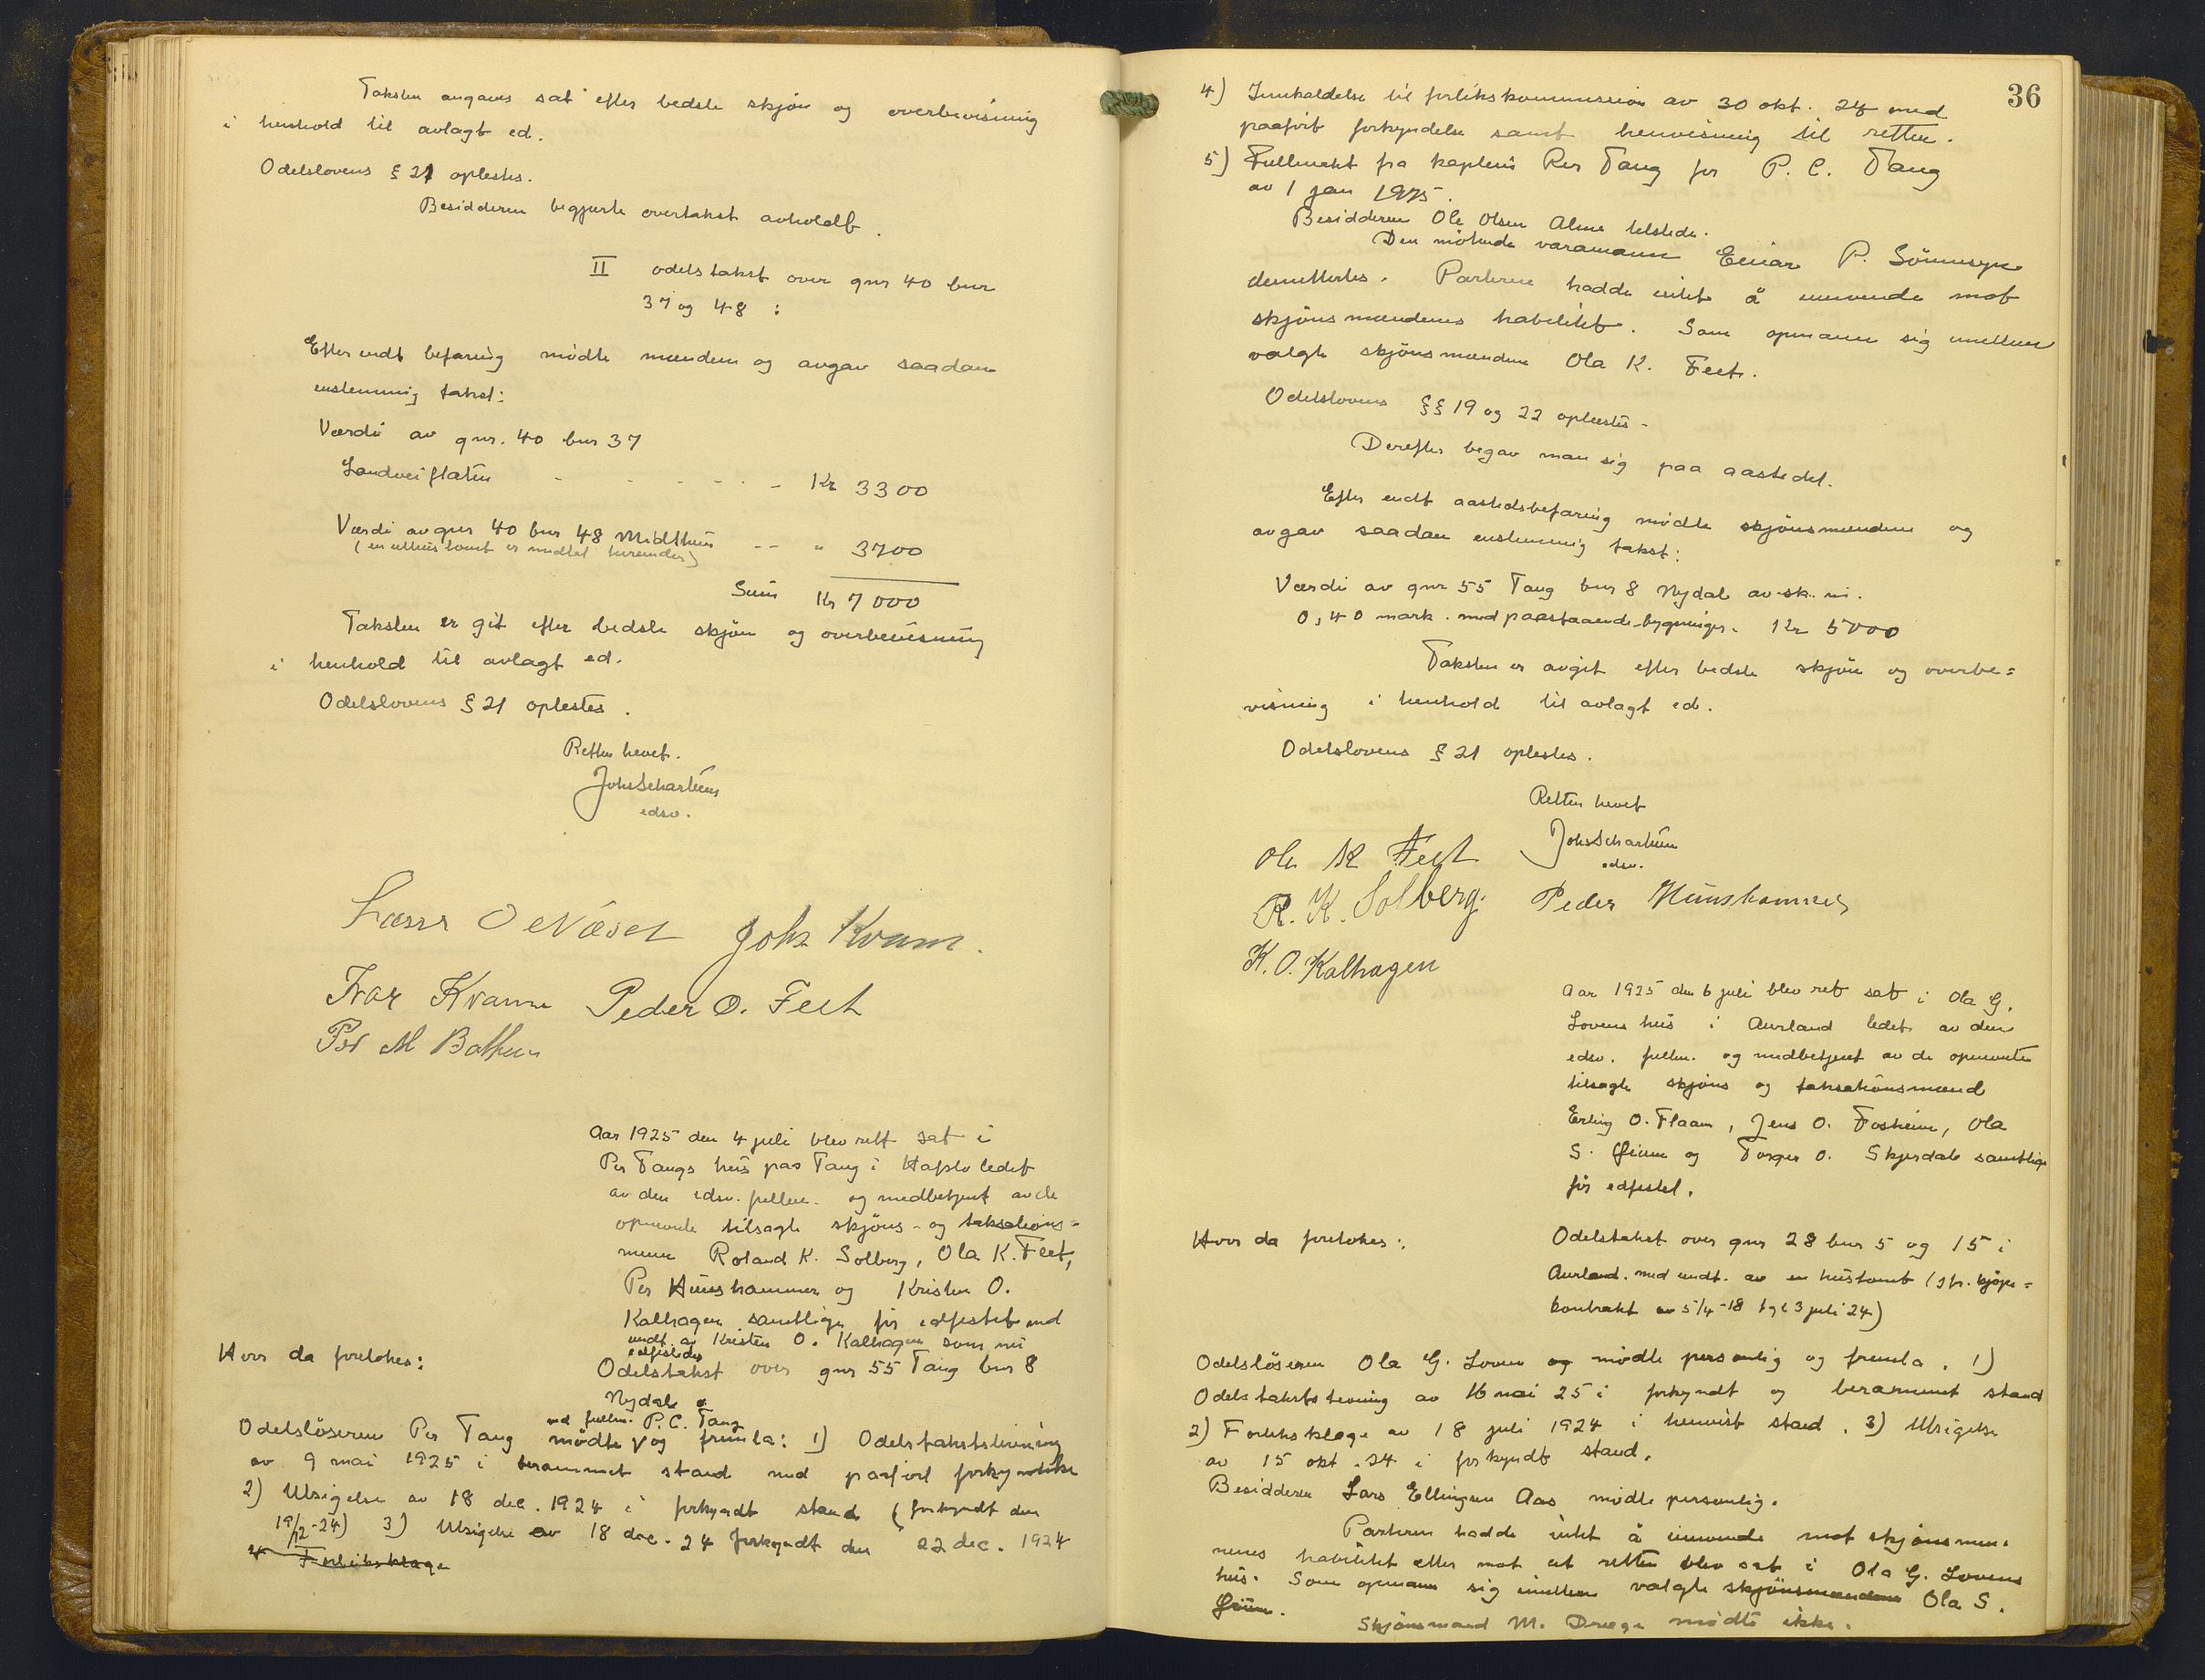 Taksten angaves sat efter bedste skjön og overbevisning
i henhold til avlagt ed.
Odelslovens § 21 oplestes.
Besidderen begjærte overtakst avholdt.
II odelstakst over gnr 40 bnr
37 og 48 :
Efter endt befaring mödte mændene og avgav saadan
enstemmig takst:
Værdi av gnr. 40 bnr 37
Landveiflaten - - - - - - Kr 3300
Værdi av gnr 40 bnr 48 Midthun -- " 3700
(en uthustomt er medtat herunder)
Sum Kr 7000
Taksten er git efter bedste skjön og overbevisning
i henhold til avlagt ed.
Odelslovens § 21 oplestes.
Retten hevet.
Johs Scharteens
edsv.
Lasse O Næset Johs Kvam.
Ivar Kvamme Peder O. Feet
Per M Bolhun
Aar 1925 den 4 juli blev rett sat i
Per Tangs hus paa Tang i Hafslo ledet
av den edsv. fullm. og medbetjent av de
opnevnte tilsagte skjöns- og taksations=
menn Roland K. Solberg, Ola K. Feet,
Per Hunshammer og Kristen O.
Kalhagen samtlige för edfestet med
undt. av Kristen O. Kalhagen som nu
edfestedes
Hvor da foretokes:
Odelstakst over gnr 55 Tang bnr 8
Nydale
ved fullm. P.C. Tang
Odelslöseren Per Tang mödte og fremla: 1) Odelstakststevning
av 9 mai 1925 i berammet stand med paafört forkyndelse
2) Utsigelse av 18 dec. 1924 i forkyndt stand (forkyndt den
19/12-24) 3) Utsigelse av 18 dec. 24 forkyndt den 22 dec. 1924
4 Forliksklage
36
4) Innkaldelse til forlikskommission av 30 okt. 24 med
paafört forkyndelse samt henvisning til retten.
5) Fullmakt fra kaptein Per Tang for P. C. Tang
av 1 jan 1925.
Besidderen Ole Olsen Alme tilstede.
Den mötende varamann Einar P. Sönnesyn
demittertes. Parterne hadde intet å innvende mot
skjönsmændenes habilitet. Som opmann sig imellem
valgte skjönsmændene Ola K. Feet.
Odelslovens §§ 19 og 22 oplæstes -
Derefter begav man sig paa aastedet.
Efter endt aastedsbefaring mödte skjönsmændene og
avgav saadan enstemmig takst:
Værdi av gnr 55 Tang bnr 8 Nydal av sk. m.
0,40 mark. med paastaaende bygninger. Kr 5000
Taksten er avgit efter bedste skjön og overbe=
visning i henhold til avlagt ed.
Odelslovens § 21 oplestes.
Retten hevet
Johs Scharteens
edsv.
Ola K Feet
R. K. Solberg. Peder Hunshammer
K. O. Kalhagen
Aar 1925 den 6 juli blev ret sat i Ola G.
Lovens hus i Aurland ledet av den
edsv. fullm. og medbetjent av de opnevnte
tilsagte skjöns og taksationsmænd
Erling O. Flaam, Jens O. Fosheim, Ola
S. Grim og Torger O. Skjerdal samtlige
för edfestet.
Hvor da foretokes:
Odelstakst over gnr 28 bnr 5 og 15 i
Aurland. med undt. av en hustomt (jfr. kjöpe=
kontrakt av 5/4-18 tgl 3 juli 24)
Odelslöseren Ola G. Loven og mödte personlig og fremla. 1)
Odelstakststevning av 16 mai 25 i forkyndt og berammet stand
2) Forliksklage av 18 juli 1924 i henvist stand. 3) Utsigelse
av 15 okt. 24 i forkyndt stand.
Besidderen Lars Ellingsen Aas mödte personlig.
Parterne hadde intet å innvende mot skjönsmen.
nenes habilitet eller mot at retten blev sat i Ola G. Lovens
hus. Som opmann sig imellem valgte skjönsmændene Ola S.
Grim. Skjönsmand M. Drege mödte ikke.